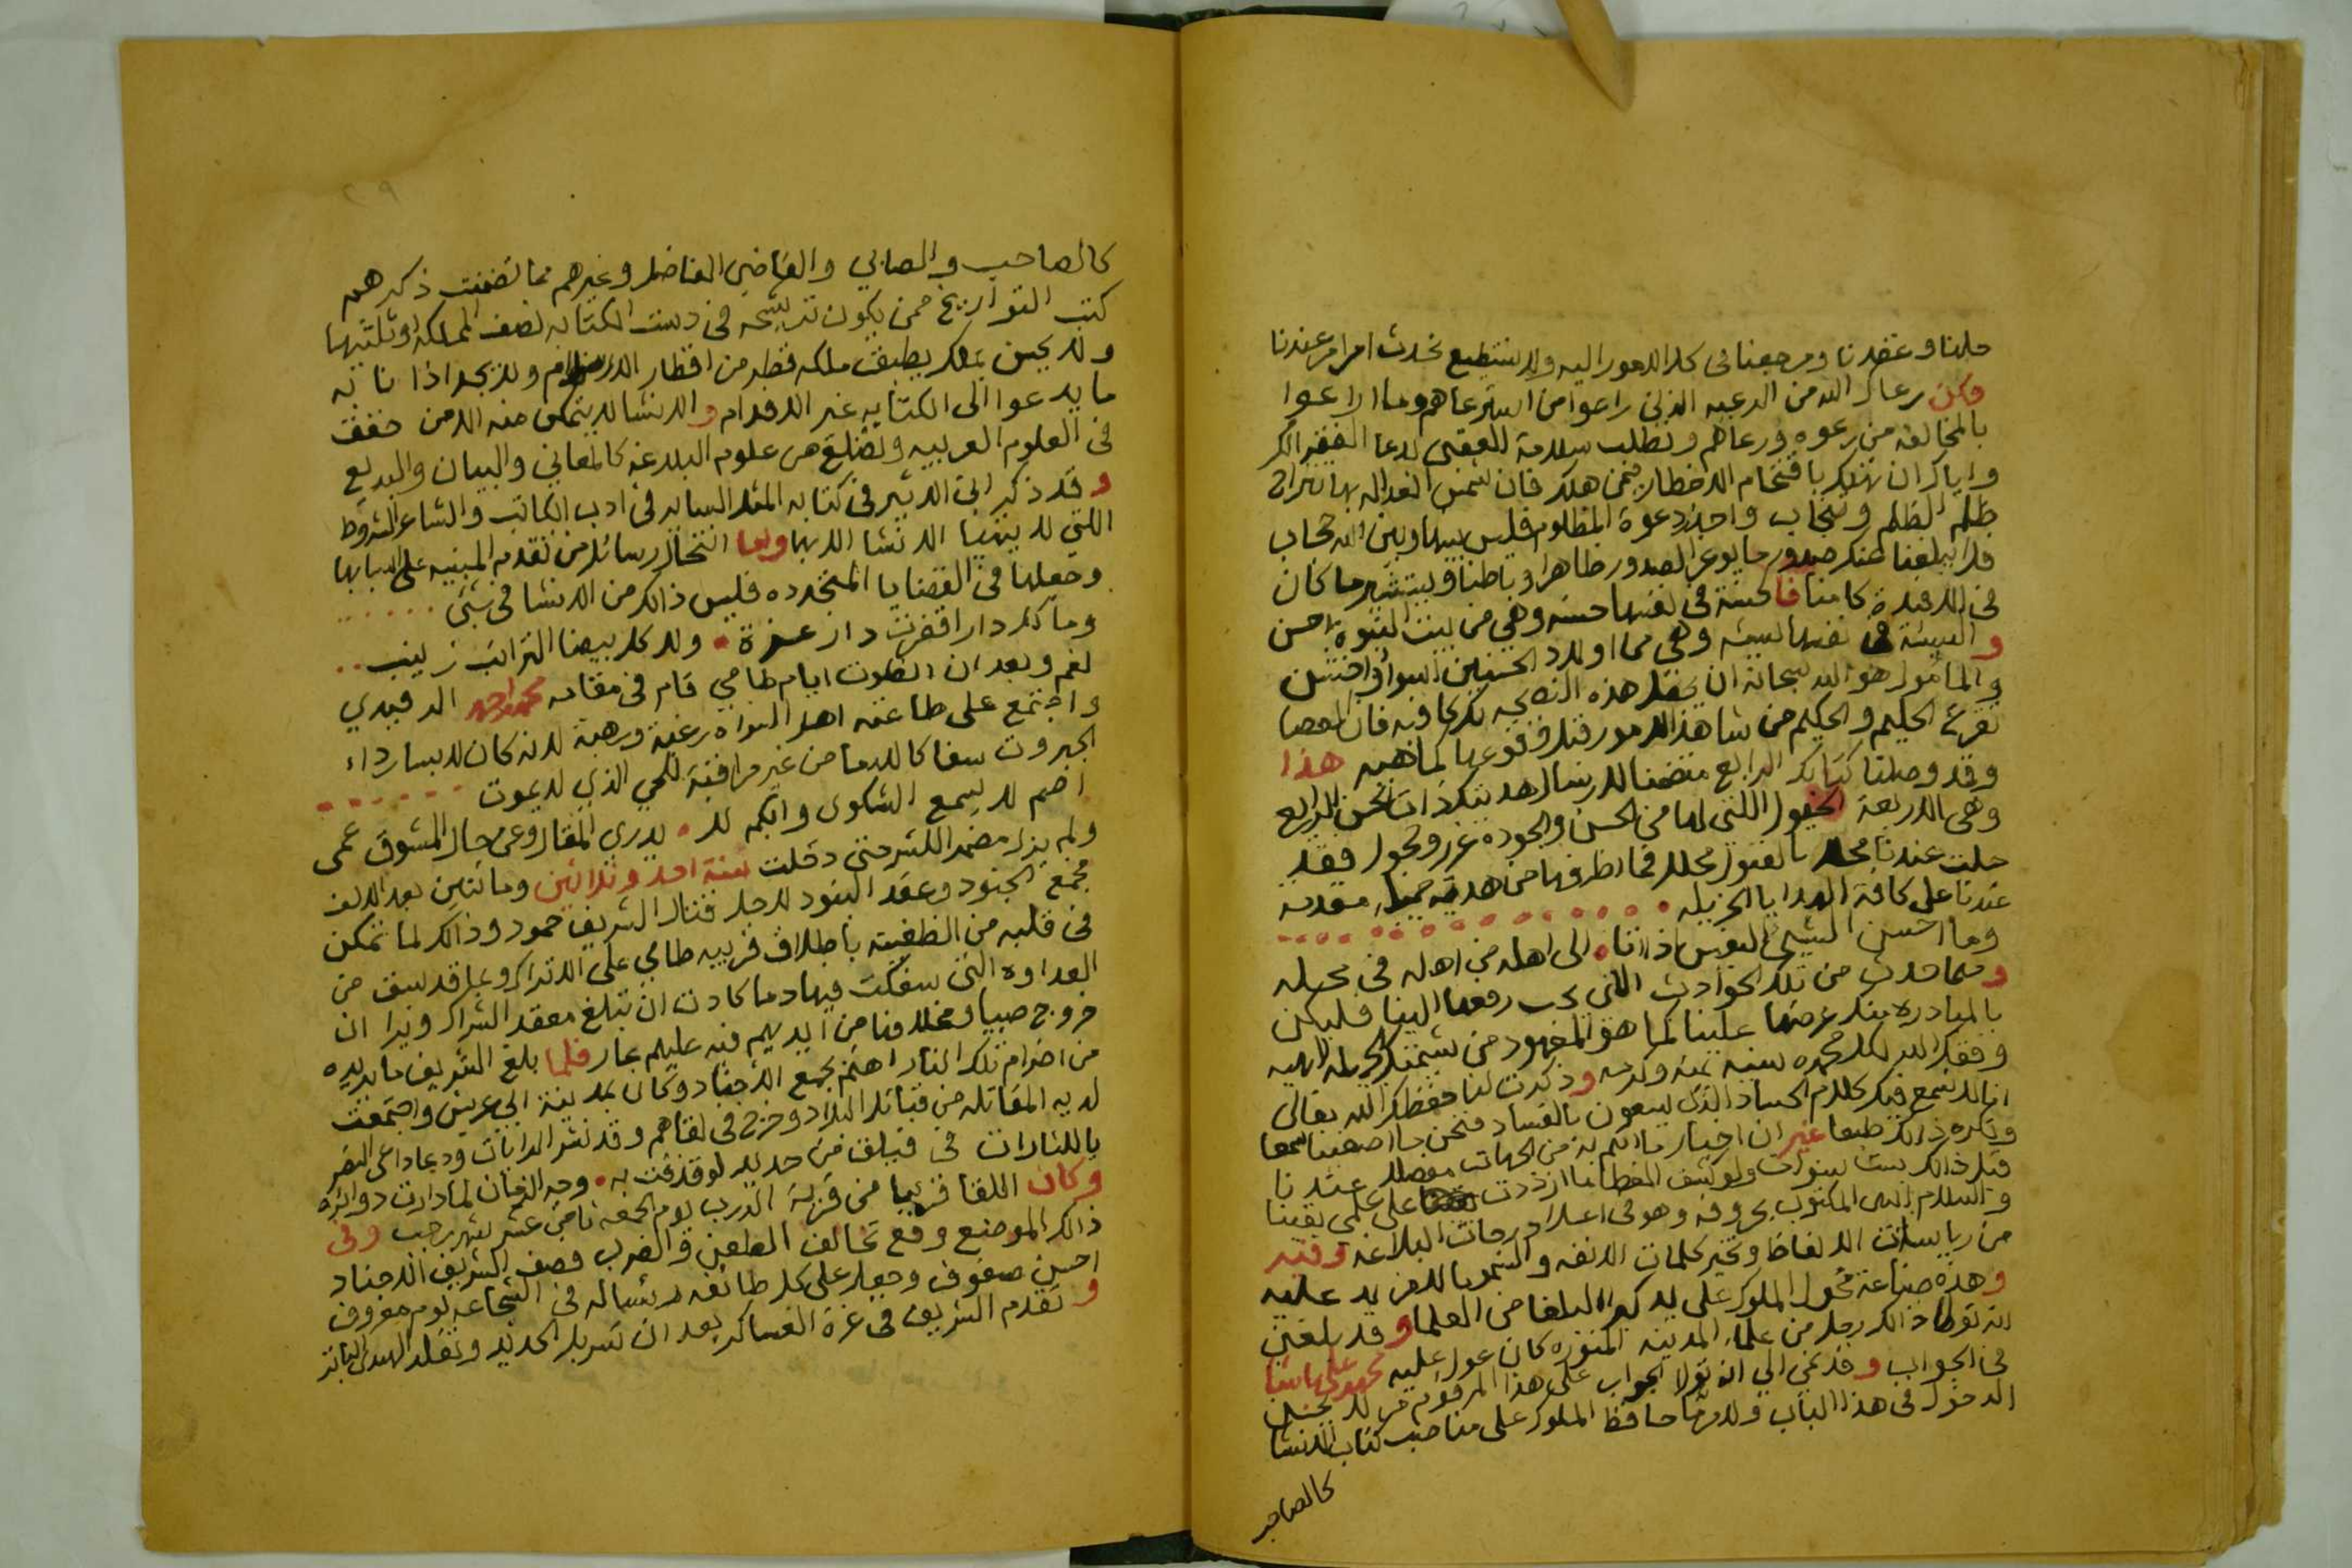 حلنا وعقدنا ومرجعنا في كل الامور اليه ولا نستطيع نحدث امرا من عندنا
وكن رعاك الله من الرعيه الذين راعوا من استرعاهم وما اراعوا
بالمخالفه من رعوه ورعاهم ونطلب سلامة العقبى لدعا الفقير الكر
واياك ان تهلك باقتحام الاخطار فمن هلك فان شمس العداله بها تنزاح
ظلم الظلم وتنجاب واحذر دعوة المظلوم فليس بينها وبين الله حجاب
فلا يبلغنا عنك صدور ما يوغر الصدور ظاهرا وباطنا ويستشهر ما كان
في الافيدة كامنا فالحسنة في نفسها حسنه وهي من بيت النبوة احسن
والسيئة في نفسها سيئه وهي من اولاد الحسنين اسوأ واخشن
والمأمول هو الله سبحانه ان يجعل هذه النصيحه لك كافيه فان العصا
تقرع الحليم والحكيم من شاهد الامور قبل وقوعها كما هيه هذا
وقد وصلنا كتابك الرابع متضمنا لارسال هديتك ذات الحسن الرابع
وهي الاربعة الخيول اللتي لها من الحسن والجوده غرر وحجول فقد
حلت عندنا محل بالقبول محلل فما اظرفها من هدية جميله مقدمه
عندنا على كافة الهدايا الجزيله
وما احسن الشيء النفيس اذا اتا الى اهله من اهله في محله
ومما حدث من تلك الحوادث التي يجب رفعها الينا فليكن
بالمبادره منك عرضها علينا كما هو المعهود من شيمتك الجميله الابيه
وفقك الله لكل محمده سنيه بمنه وكرمه وذكرت لنا حفظك الله تعالى
انا لا نسمع فيك كلام الحساد الذين يسعون بالفساد فنحن ما اصغينا سمعا
ونكره ذلك طبعا غير ان اخبار ما انتم به من الجهات مفصله عندنا
قبل ذلك بست سنوات ولو كشف الغطا ما ازددت على علمي يقينا
والسلام انتهى المكتوب بحروفه وهو في اعلا درجات البلاغه وفيه
من رياسات الالفاظ وتخير كلمات الانفه والسمو ما لا مزيد عليه
وهذه صناعة فحول الملوك على يد كبرا البلغا من العلما وقد بلغني
انه تولا ذلك رجل من علماء المدينه المنوره كان عول عليه محمد علي باشا
في الجواب وقد نمى الي انه تولا الجواب على هذا المرقوم من لا يحسن
الدخول في هذا الباب ولامرما حافظ الملوك على مناصب كتاب الانشا
كالصاحب
٢٩
كالصاحب والصابي والقاضي الفاضل وغيرهم مما تضمنت ذكرهم
كتب التواريخ ممن يكون ترشيحه في دست الكتابه نصف المملكه او ثلثيها
ولا يحسن بملك يطبق ملكه قطر من اقطار الارض ولا يجد اذا نابه
ما يدعوا الى الكتابه غير الاقدام والانشا لا يتمكن منه الا من حقق
في العلوم العربيه وتضلع من علوم البلاغه كالمعاني والبيان والبديع
وقد ذكر ابن الاثير في كتابه المثل الساير في ادب الكاتب والشاعر الشروط
اللتي لا يتهيا الانشا الا بها واما انتحال رسائل من تقدم المبنيه على اسبابها
وجعلها في القضايا المتجدده فليس ذالك من الانشا في شئ
وما كل دار اقفرت دار عزة ولا كل بيضا الترائب زينب
نعم وبعد ان انطوت ايام طامي قام في مقامه محمد بن احمد الرفيدي
واجتمع على طاعته اهل السراه رغبة ورهبة لانه كان لابسا رداء
الجبروت سفاكا للدما من غير مراقبة للحي الذي لا يموت
اصم لا يسمع الشكوى وابكم لا يدري المقال وعن حال المشوق عمى
ولم يزل مضمر اللشر حتى دخلت سنة احد وثلاثين ومائتين بعد الالف
فجمع الجنود وعقد البنود لاجل قتال الشريف حمود وذالك لما تمكن
في قلبه من الظغينة باطلاق قربيه طامي على الاتراك وبما قد سبق من
العداوه التي سفكت فيها دما كادت ان تبلغ معقد الشراك ونرا ان
خروج صبيا ومخلافنا من ايديهم فيه عليهم عار فلما بلغ الشريف ما يريده
من اضرام تلك النار اهتم بجمع الاجناد وكان بمدينة ابي عريش واجتمعت
لديه المقاتله من قبائل البلاد وخرج في لقاهم وقد نشر الرايات ودعا داعي النصر
بالثارات في فيلق من حديد لو قذفت به وجه الزمان لما دارت دوائره
وكان اللقا قريبا من قرية الدرب يوم الجمعه ثامن عشر شهر رجب وفي
ذالك الموضع وقع تخالف الطعن والضرب وصف الشريف الاجناد
احسن صفوف وجعل على كل طائفه رئسا له في الشجاعه يوم معروف
وتقدم الشريف في غرة العساكر بعد ان تسربل الحديد وتقلد المهند الباتر